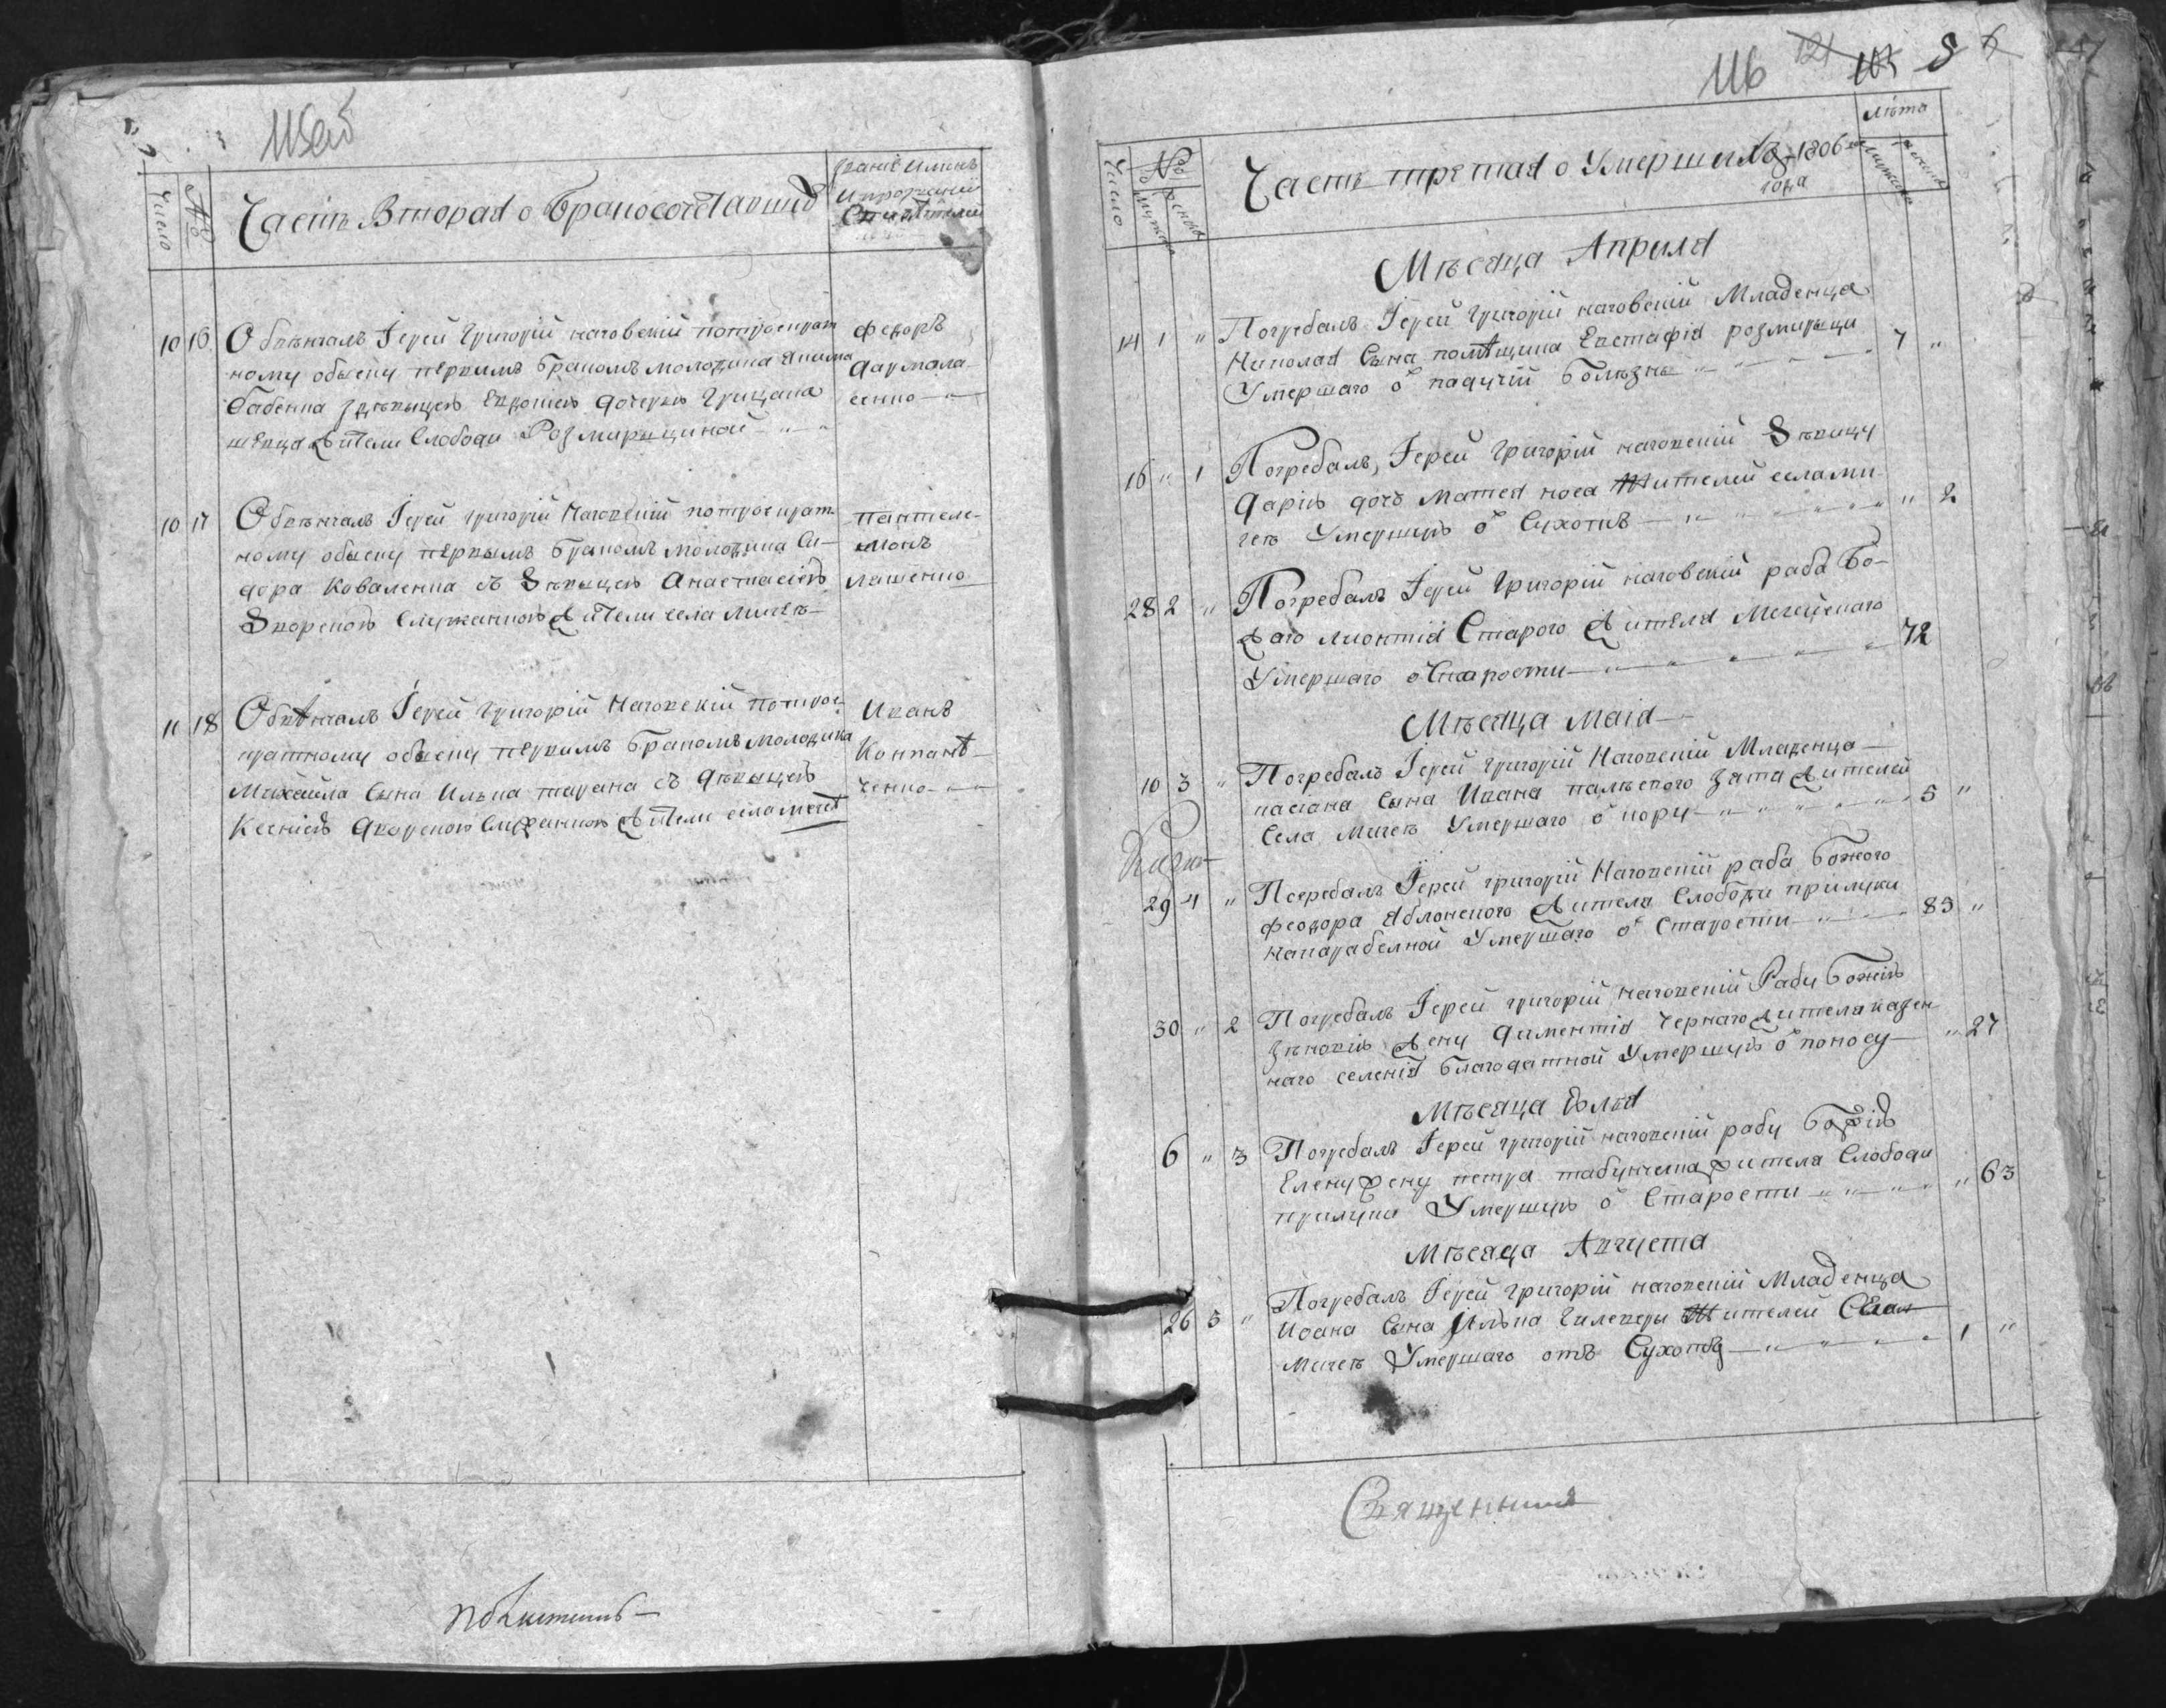 Число
№
Часть Вторая о Бракосочетавшихъ
Званіе Именъ
и прозваній
10 16 Обвѣнчалъ Іерей Григорій наговскій потроекрат
ному обыску первимъ бракомъ молодика Якима
бабенка з дѣвицею Евдокіею дочерью Грицана
шевца жители Слободи Розмирициной
Федоръ
Дармола
сенко
10 17 Обвѣнчалъ Іерей григорій Наговскій потроекрат
ному обыску первымъ бракомъ молодика Си-
дора Коваленка съ Дѣвицею Анастасіею
Дворскою Служанкою жители села мичеѣ
пантеле-
монъ
лашенко
11 18 Обвѣнчалъ Іерей Григорій Наговскій потрое
кратному обыску первимъ бракомъ молодика
Михайла Сына Илька тарана съ дѣвицею
Ксенією Дворскою Служанкою жители села мечеѣ
Иванъ
Компанѣ
ченко
116 121 8
Число
№
Часть третая о Умершихъ 1806
года
лѣта
Мѣсяца Апрыля
14 1 " Погребалъ Іерей Григорій наговскій Младенца
Николая Сына помѣщика Евстафія розмирици
Умершаго о падучій болѣзнѣ 7 "
16 " 1 Погребалъ Іерей Григорій наговскій Дѣвицу
Дарію дочь Матвея носа Жителей села ми
чеѣ Умершую о Сухотѣ " 2
28 2 " Погребалъ Іерей Григорій наговскій раба Бо-
жаго Лионтія Старого жителя Мечецкаго
Умершаго о Старости 72
Мѣсяца Маія
10 3 " Погребалъ Іерей Григорій Наговскій Младенца
касіана Сына Ивана палѣского зятя жителей
Села мичеѣ Умершаго о кору 5 "
29 4 " Погребалъ Іерей григорій Наговскій раба Божого
Феодора Яблонского жителя Слободи прилуки
Умершаго о Старости 83 "
30 " 2 Погребалъ Іерей григорій наговскій Рабу Божію
Зѣновію жену Диментія Чернаго жителя казен
наго селенія благодатной Умершую о поносу " 27
Мѣсяца Юлья
6 " 3 Погребалъ Іерей григорій наговскій рабу Божію
Елену жену петра табунчика жителя Слободи
прилуки Умершую о Старости " 63
Мѣсяца Августа
26 5 " Погребалъ Іерей григорій наговскій Младенца
Иоана Сына Илька Жителей Села
мичеѣ Умершаго отъ Сухоты 1 "
Священникъ